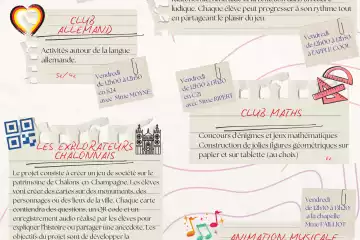 ludique. Chaque élève peut progresser à son rythme tout
en partageant le plaisir du jeu.
CLUB
ALLEMAND
Activités autour de la langue
allemande.
Vendredi
de 12h30 à 13h30
en S24
avec Mme
Vendredi
en C21
avec Mme
Vendredi
CLUB MATHS
Concours d'énigmes et jeux mathématiques
Construction de jolies figures géométriques sur
papier et sur tablette (au choix)
LES EXPLORATEURS
CHALONNAIS
Le projet consiste à créer un jeu de société sur le
patrimoine de Châlons-en-Champagne. Les élèves
vont créer des cartes sur des monuments, des
personnages ou des lieux de la ville. Chaque carte
contiendra des questions, un QR code et un
enregistrement audio réalisé par les élèves pour
expliquer l'histoire ou partager une anecdote. Les
objectifs du projet sont de développer la
Vendredi
à la chapelle
Mme
ANIMATION MUSICALE